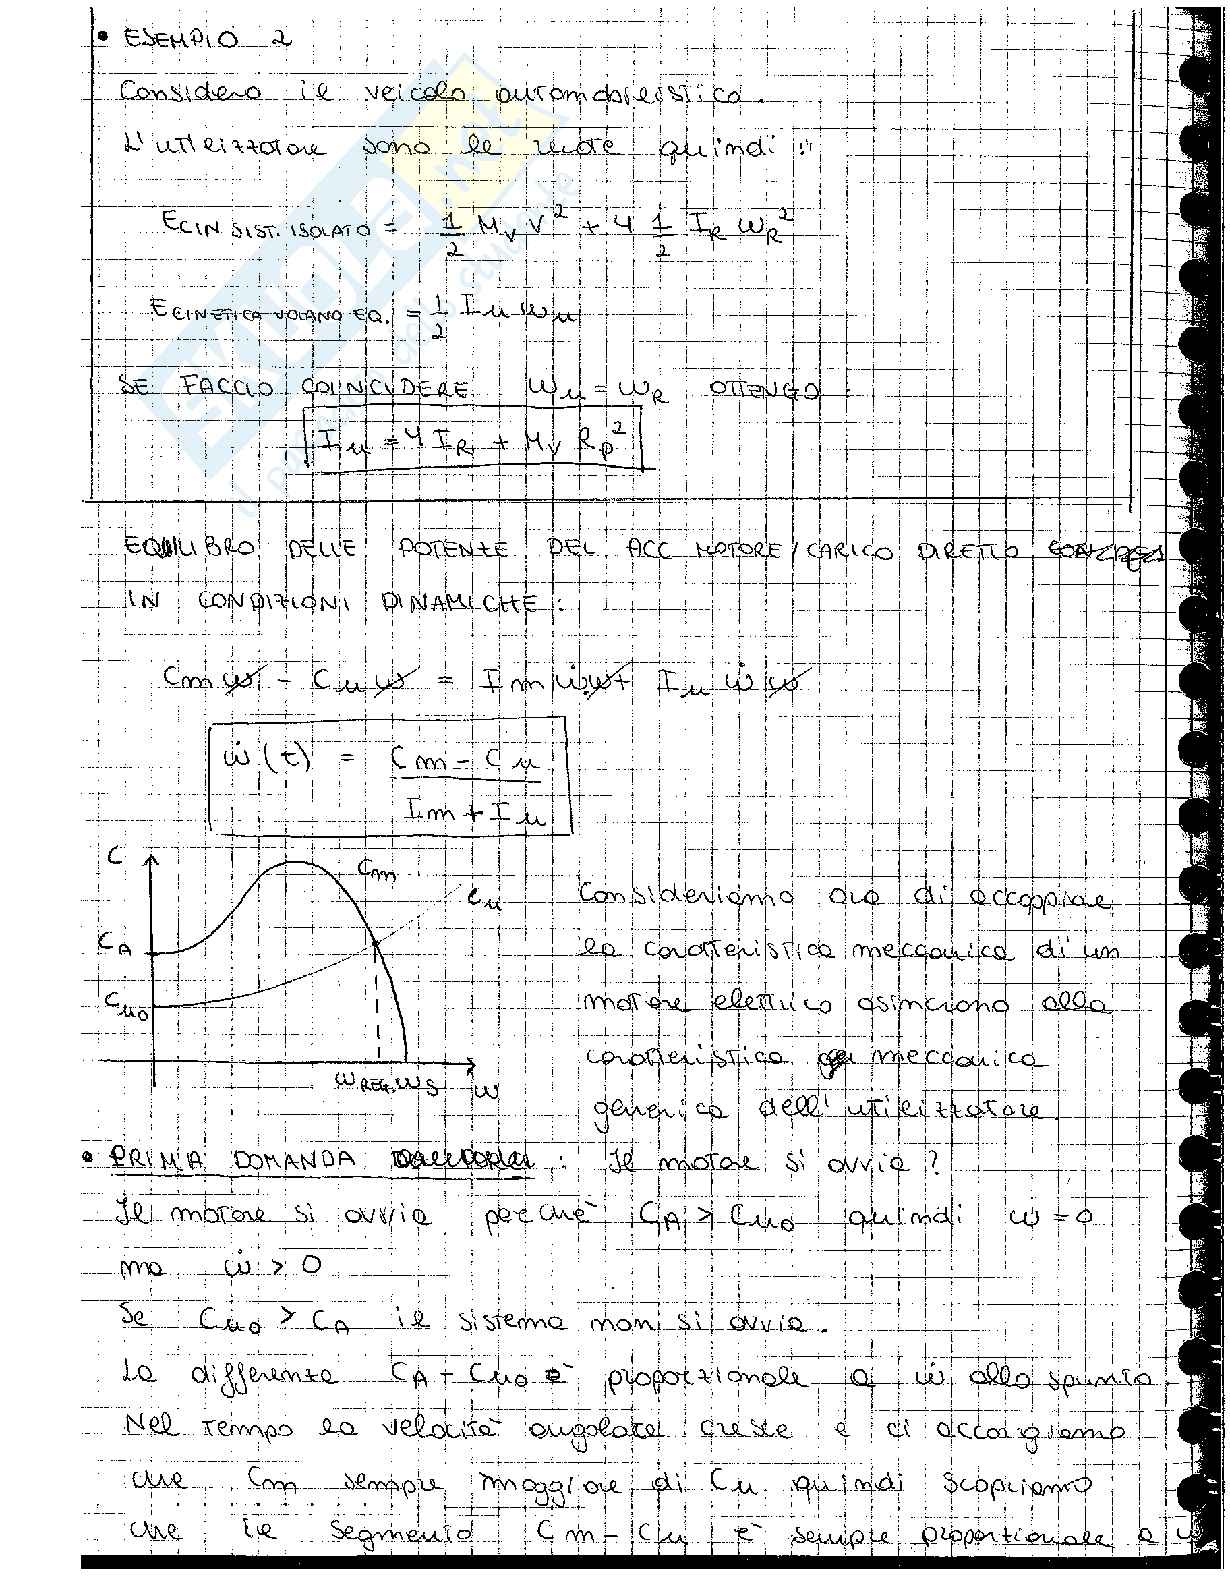 • ESEMPIO 2
Considero il veicolo automobilistico.
L'utilizzatore sono le ruote quindi :
E CIN SIST. ISOLATO = 1/2 M_V V² + 4 1/2 I_R ω_R²
E CINETICA VOLANO EQ. = 1/2 I_u ω_u
SE FACCIO COINCIDERE ω_u = ω_R OTTENGO :
I_u = 4 I_R + M_V R_P²
EQUILIBRO DELLE POTENZE DEL ACC MOTORE/CARICO DIRETTO
IN CONDIZIONI DINAMICHE :
C_m ω - C_u ω = I_m ω̇ ω + I_u ω̇ ω
ω̇(t) = (C_m - C_u) / (I_m + I_u)
C
C_m
C_u
C_A
C_u0
ω_REG. ω_S ω
Consideriamo ora di accoppiare
la caratteristica meccanica di un
motore elettrico asincrono alla
caratteristica meccanica
generica dell'utilizzatore.
• PRIMA DOMANDA : Il motore si avvia ?
Il motore si avvia perché C_A > C_u0 quindi ω = 0
ma ω̇ > 0
Se C_u0 > C_A il sistema non si avvia.
La differenza C_A - C_u0 è proporzionale a ω̇ allo spunto
Nel tempo la velocità angolare cresce e ci accorgiamo
che C_m sempre maggiore di C_u quindi scopriamo
che il segmento C_m - C_u è sempre proporzionale a